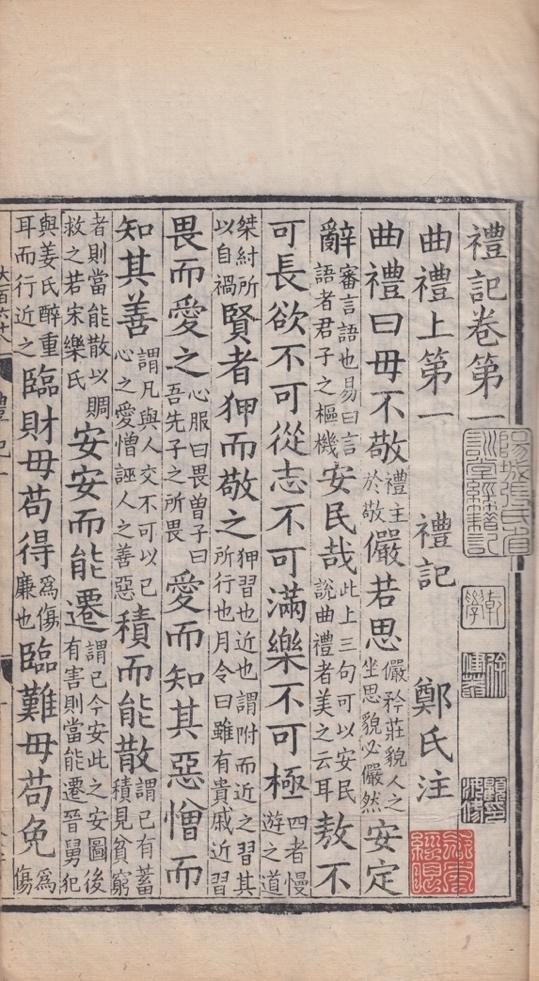 禮記卷第一
曲禮上第一 禮記 鄭氏注
曲禮曰毋不敬禮主於敬儼若思儼矜莊貌人之坐思貌必儼然安定
辭審言語也易曰言語者君子之樞機安民哉此上三句可以安民說曲禮者美之云耳敖不
可長欲不可從志不可滿樂不可極四者慢遊之道
桀紂所以自禍賢者狎而敬之狎習也近也謂附而近之習其所行也月令曰雖有貴戚近習
畏而愛之心服曰畏曾子曰吾先子之所畏愛而知其惡憎而
知其善謂凡與人交不可以己心之愛憎誣人之善惡積而能散謂己有蓄積見貧窮
者則當能散以賙救之若宋樂氏安安而能遷謂己今安此之安圖後有害則當能遷晉舅犯
與姜氏醉重耳而行近之臨財毋苟得為傷廉也臨難毋苟免為傷
大百六十八
禮記一